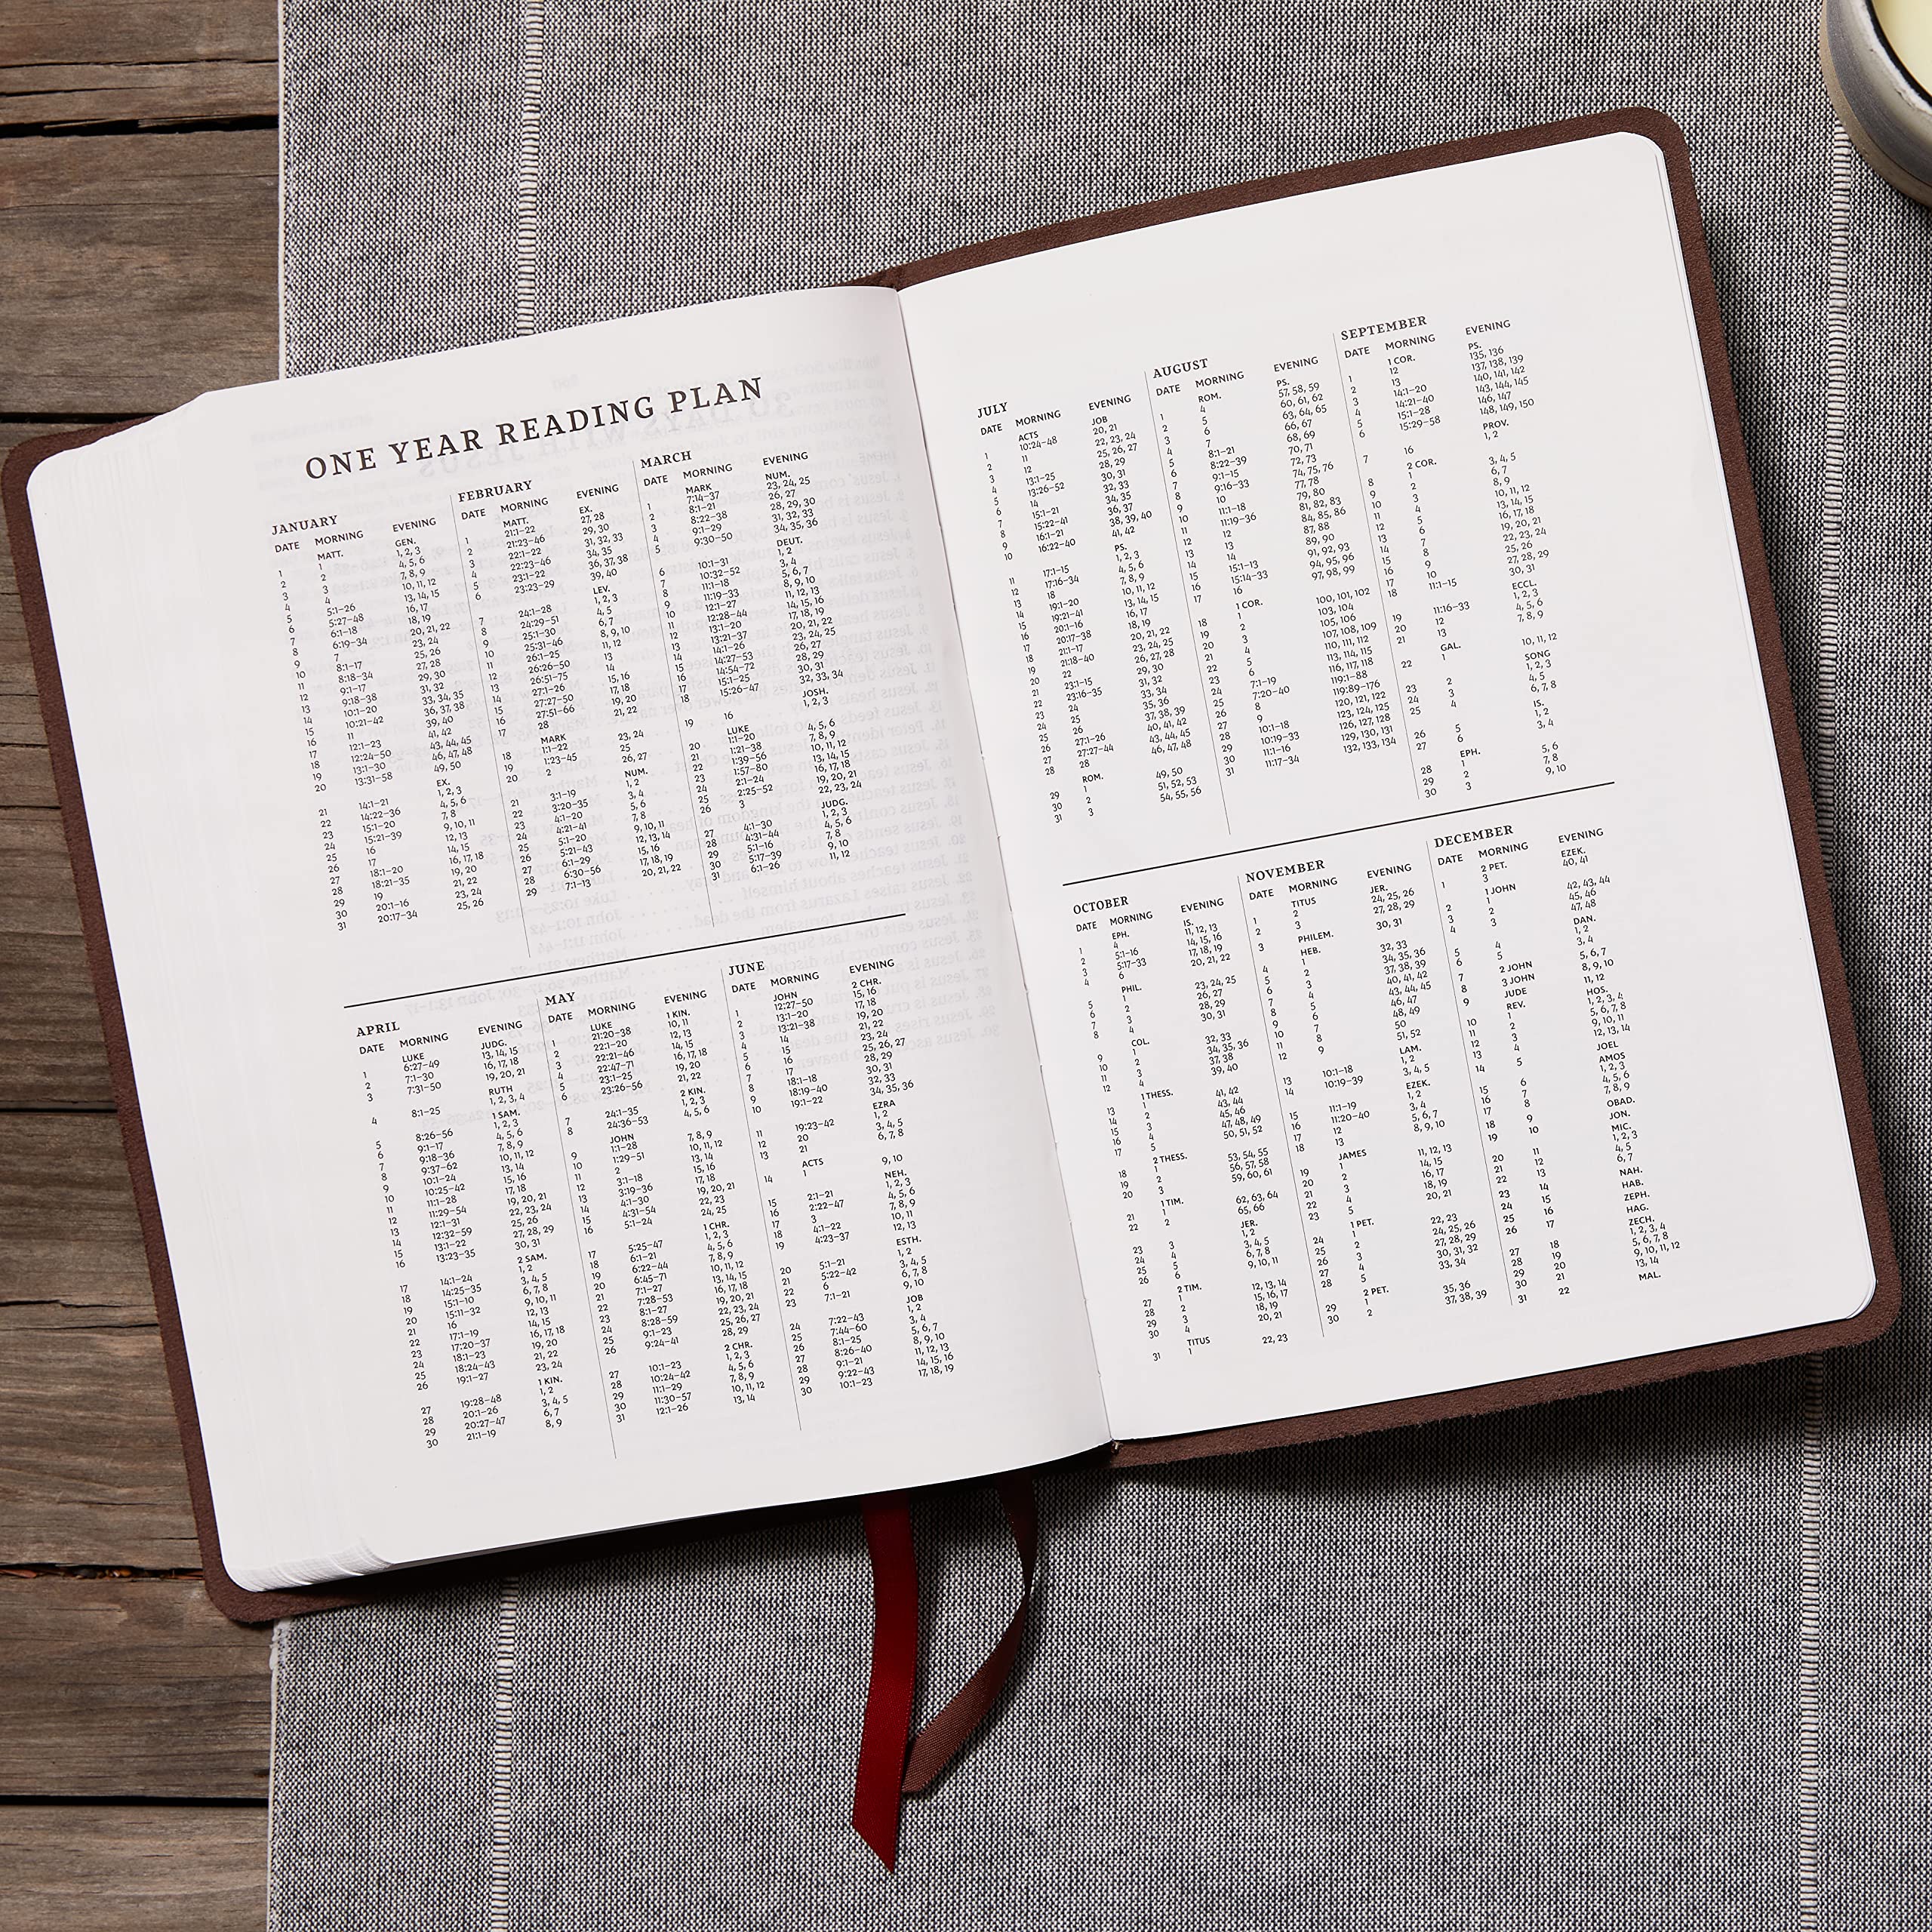 ONE YEAR READING PLAN
JANUARY
DATE MORNING EVENING
MATT. GEN.
1 1 1, 2, 3
2 2 4, 5, 6
3 3 7, 8, 9
4 4 10, 11, 12
5 5:1–26 13, 14, 15
6 5:27–48 16, 17
7 6:1–18 18, 19
8 6:19–34 20, 21, 22
9 7 23, 24
10 8:1–17 25, 26
11 8:18–34 27, 28
12 9:1–17 29, 30
13 9:18–38 31, 32
14 10:1–20 33, 34, 35
15 10:21–42 36, 37, 38
16 11 39, 40
17 12:1–23 41, 42
18 12:24–50 43, 44, 45
19 13:1–30 46, 47, 48
20 13:31–58 49, 50
EX.
21 14:1–21 1, 2, 3
22 14:22–36 4, 5, 6
23 15:1–20 7, 8
24 15:21–39 9, 10, 11
25 16 12, 13
26 17 14, 15
27 18:1–20 16, 17, 18
28 18:21–35 19, 20
29 19 21, 22
30 20:1–16 23, 24
31 20:17–34 25, 26
FEBRUARY
DATE MORNING EVENING
MATT. EX.
1 21:1–22 27, 28
2 21:23–46 29, 30
3 22:1–22 31, 32, 33
4 22:23–46 34, 35
5 23:1–22 36, 37, 38
6 23:23–29 39, 40
LEV.
7 24:1–28 1, 2, 3
8 24:29–51 4, 5
9 25:1–30 6, 7
10 25:31–46 8, 9, 10
11 26:1–25 11, 12
12 26:26–50 13
13 26:51–75 14
14 27:1–26 15, 16
15 27:27–50 17, 18
16 27:51–66 19, 20
17 28 21, 22
MARK
18 1:1–22 23, 24
19 1:23–45 25
20 2 26, 27
NUM.
21 3:1–19 1, 2
22 3:20–35 3, 4
23 4:1–20 5, 6
24 4:21–41 7, 8
25 5:1–20 9, 10, 11
26 5:21–43 12, 13, 14
27 6:1–29 15, 16
28 6:30–56 17, 18, 19
29 7:1–13 20, 21, 22
MARCH
DATE MORNING EVENING
MARK NUM.
1 7:14–37 23, 24, 25
2 8:1–21 26, 27
3 8:22–38 28, 29, 30
4 9:1–29 31, 32, 33
5 9:30–50 34, 35, 36
DEUT.
6 10:1–31 1, 2
7 10:32–52 3, 4
8 11:1–18 5, 6, 7
9 11:19–33 8, 9, 10
10 12:1–27 11, 12, 13
11 12:28–44 14, 15, 16
12 13:1–20 17, 18, 19
13 13:21–37 20, 21, 22
14 14:1–26 23, 24, 25
15 14:27–53 26, 27
16 14:54–72 28, 29
17 15:1–25 30, 31
18 15:26–47 32, 33, 34
JOSH.
19 16 1, 2, 3
LUKE
20 1:1–20 4, 5, 6
21 1:21–38 7, 8, 9
22 1:39–56 10, 11, 12
23 1:57–80 13, 14, 15
24 2:1–24 16, 17, 18
25 2:25–52 19, 20, 21
26 3 22, 23, 24
JUDG.
27 4:1–30 1, 2, 3
28 4:31–44 4, 5, 6
29 5:1–16 7, 8
30 5:17–39 9, 10
31 6:1–26 11, 12
APRIL
DATE MORNING EVENING
LUKE JUDG.
1 6:27–49 13, 14, 15
2 7:1–30 16, 17, 18
3 7:31–50 19, 20, 21
RUTH
4 8:1–25 1, 2, 3, 4
1 SAM.
5 8:26–56 1, 2, 3
6 9:1–17 4, 5, 6
7 9:18–36 7, 8, 9
8 9:37–62 10, 11, 12
9 10:1–24 13, 14
10 10:25–42 15, 16
11 11:1–28 17, 18
12 11:29–54 19, 20, 21
13 12:1–31 22, 23, 24
14 12:32–59 25, 26
15 13:1–22 27, 28, 29
16 13:23–35 30, 31
2 SAM.
17 14:1–24 1, 2
18 14:25–35 3, 4, 5
19 15:1–10 6, 7, 8
20 15:11–32 9, 10, 11
21 16 12, 13
22 17:1–19 14, 15
23 17:20–37 16, 17, 18
24 18:1–23 19, 20
25 18:24–43 21, 22
26 19:1–27 23, 24
1 KIN.
27 19:28–48 1, 2
28 20:1–26 3, 4, 5
29 20:27–47 6, 7
30 21:1–19 8, 9
MAY
DATE MORNING EVENING
LUKE 1 KIN.
1 21:20–38 10, 11
2 22:1–20 12, 13
3 22:21–46 14, 15
4 22:47–71 16, 17, 18
5 23:1–25 19, 20
6 23:26–56 21, 22
2 KIN.
7 24:1–35 1, 2, 3
8 24:36–53 4, 5, 6
JOHN
9 1:1–28 7, 8, 9
10 1:29–51 10, 11, 12
11 2 13, 14
12 3:1–18 15, 16
13 3:19–36 17, 18
14 4:1–30 19, 20, 21
15 4:31–54 22, 23
16 5:1–24 24, 25
1 CHR.
17 5:25–47 1, 2, 3
18 6:1–21 4, 5, 6
19 6:22–44 7, 8, 9
20 6:45–71 10, 11, 12
21 7:1–27 13, 14, 15
22 7:28–53 16, 17, 18
23 8:1–27 19, 20, 21
24 8:28–59 22, 23, 24
25 9:1–23 25, 26, 27
26 9:24–41 28, 29
2 CHR.
27 10:1–23 1, 2, 3
28 10:24–42 4, 5, 6
29 11:1–29 7, 8, 9
30 11:30–57 10, 11, 12
31 12:1–26 13, 14
JUNE
DATE MORNING EVENING
JOHN 2 CHR.
1 12:27–50 15, 16
2 13:1–20 17, 18
3 13:21–38 19, 20
4 14 21, 22
5 15 23, 24
6 16 25, 26, 27
7 17 28, 29
8 18:1–18 30, 31
9 18:19–40 32, 33
10 19:1–22 34, 35, 36
EZRA
11 19:23–42 1, 2
12 20 3, 4, 5
13 21 6, 7, 8
ACTS
14 1 9, 10
NEH.
15 2:1–21 1, 2, 3
16 2:22–47 4, 5, 6
17 3 7, 8, 9
18 4:1–22 10, 11
19 4:23–37 12, 13
ESTH.
20 5:1–21 1, 2
21 5:22–42 3, 4, 5
22 6 6, 7, 8
23 7:1–21 9, 10
JOB
24 7:22–43 1, 2
25 7:44–60 3, 4
26 8:1–25 5, 6, 7
27 8:26–40 8, 9, 10
28 9:1–21 11, 12, 13
29 9:22–43 14, 15, 16
30 10:1–23 17, 18, 19
JULY
DATE MORNING EVENING
ACTS JOB
1 10:24–48 20, 21
2 11 22, 23, 24
3 12 25, 26, 27
4 13:1–25 28, 29
5 13:26–52 30, 31
6 14 32, 33
7 15:1–21 34, 35
8 15:22–41 36, 37
9 16:1–21 38, 39, 40
10 16:22–40 41, 42
PS.
11 17:1–15 1, 2, 3
12 17:16–34 4, 5, 6
13 18 7, 8, 9
14 19:1–20 10, 11, 12
15 19:21–41 13, 14, 15
16 20:1–16 16, 17
17 20:17–38 18, 19
18 21:1–17 20, 21, 22
19 21:18–40 23, 24, 25
20 22 26, 27, 28
21 23:1–15 29, 30
22 23:16–35 31, 32
23 24 33, 34
24 25 35, 36
25 26 37, 38, 39
26 27:1–26 40, 41, 42
27 27:27–44 43, 44, 45
28 28 46, 47, 48
ROM.
29 1 49, 50
30 2 51, 52, 53
31 3 54, 55, 56
AUGUST
DATE MORNING EVENING
ROM. PS.
1 4 57, 58, 59
2 5 60, 61, 62
3 6 63, 64, 65
4 7 66, 67
5 8:1–21 68, 69
6 8:22–39 70, 71
7 9:1–15 72, 73
8 9:16–33 74, 75, 76
9 10 77, 78
10 11:1–18 79, 80
11 11:19–36 81, 82, 83
12 12 84, 85, 86
13 13 87, 88
14 14 89, 90
15 15:1–13 91, 92, 93
16 15:14–33 94, 95, 96
17 16 97, 98, 99
1 COR.
18 1 100, 101, 102
19 2 103, 104
20 3 105, 106
21 4 107, 108, 109
22 5 110, 111, 112
23 6 113, 114, 115
24 7:1–19 116, 117, 118
25 7:20–40 119:1–88
26 8 119:89–176
27 9 120, 121, 122
28 10:1–18 123, 124, 125
29 10:19–33 126, 127, 128
30 11:1–16 129, 130, 131
31 11:17–34 132, 133, 134
SEPTEMBER
DATE MORNING EVENING
1 COR. PS.
1 12 135, 136
2 13 137, 138, 139
3 14:1–20 140, 141, 142
4 14:21–40 143, 144, 145
5 15:1–28 146, 147
6 15:29–58 148, 149, 150
PROV.
7 16 1, 2
2 COR.
8 1 3, 4, 5
9 2 6, 7
10 3 8, 9
11 4 10, 11, 12
12 5 13, 14, 15
13 6 16, 17, 18
14 7 19, 20, 21
15 8 22, 23, 24
16 9 25, 26
17 10 27, 28, 29
18 11:1–15 30, 31
ECCL.
19 11:16–33 1, 2, 3
20 12 4, 5, 6
21 13 7, 8, 9
GAL.
22 1 10, 11, 12
SONG
23 2 1, 2, 3
24 3 4, 5
25 4 6, 7, 8
IS.
26 5 1, 2
27 6 3, 4
EPH.
28 1 5, 6
29 2 7, 8
30 3 9, 10
OCTOBER
DATE MORNING EVENING
EPH. IS.
1 4 11, 12, 13
2 5:1–16 14, 15, 16
3 5:17–33 17, 18, 19
4 6 20, 21, 22
PHIL.
5 1 23, 24, 25
6 2 26, 27
7 3 28, 29
8 4 30, 31
COL.
9 1 32, 33
10 2 34, 35, 36
11 3 37, 38
12 4 39, 40
1 THESS.
13 1 41, 42
14 2 43, 44
15 3 45, 46
16 4 47, 48, 49
17 5 50, 51, 52
2 THESS.
18 1 53, 54, 55
19 2 56, 57, 58
20 3 59, 60, 61
1 TIM.
21 1 62, 63, 64
22 2 65, 66
JER.
23 3 1, 2
24 4 3, 4, 5
25 5 6, 7, 8
26 6 9, 10, 11
2 TIM.
27 1 12, 13, 14
28 2 15, 16, 17
29 3 18, 19
30 4 20, 21
TITUS
31 1 22, 23
NOVEMBER
DATE MORNING EVENING
TITUS JER.
1 2 24, 25, 26
2 3 27, 28, 29
PHILEM.
3 30, 31
HEB.
4 1 32, 33
5 2 34, 35, 36
6 3 37, 38, 39
7 4 40, 41, 42
8 5 43, 44, 45
9 6 46, 47
10 7 48, 49
11 8 50
12 9 51, 52
LAM.
13 10:1–18 1, 2
14 10:19–39 3, 4, 5
EZEK.
15 11:1–19 1, 2
16 11:20–40 3, 4
17 12 5, 6, 7
18 13 8, 9, 10
JAMES
19 1 11, 12, 13
20 2 14, 15
21 3 16, 17
22 4 18, 19
23 5 20, 21
1 PET.
24 1 22, 23
25 2 24, 25, 26
26 3 27, 28, 29
27 4 30, 31, 32
28 5 33, 34
2 PET.
29 1 35, 36
30 2 37, 38, 39
DECEMBER
DATE MORNING EVENING
2 PET. EZEK.
1 3 40, 41
1 JOHN
2 1 42, 43, 44
3 2 45, 46
4 3 47, 48
DAN.
5 4 1, 2
6 5 3, 4
7 2 JOHN 5, 6, 7
8 3 JOHN 8, 9, 10
9 JUDE 11, 12
REV. HOS.
10 1 1, 2, 3, 4
11 2 5, 6, 7, 8
12 3 9, 10, 11
13 4 12, 13, 14
14 5 JOEL
AMOS
15 6 1, 2, 3
16 7 4, 5, 6
17 8 7, 8, 9
18 9 OBAD.
19 10 JON.
MIC.
20 11 1, 2, 3
21 12 4, 5
22 13 6, 7
23 14 NAH.
24 15 HAB.
25 16 ZEPH.
26 17 HAG.
ZECH.
27 18 1, 2, 3, 4
28 19 5, 6, 7, 8
29 20 9, 10, 11, 12
30 21 13, 14
31 22 MAL.